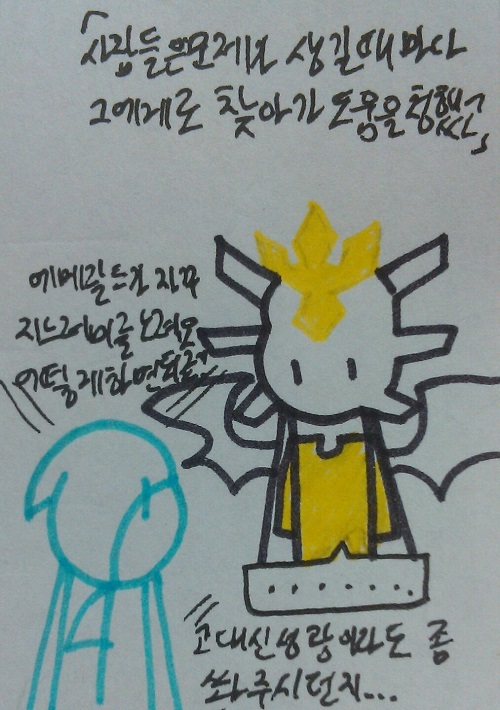 「사람들은 문제가 생길때마다
그에게로 찾아가 도움을 청했다」
에메랄드가 자꾸
지느러미를 보여요
어떻게하면되죠?
고대신성광이라도 좀
쏴주시던지...